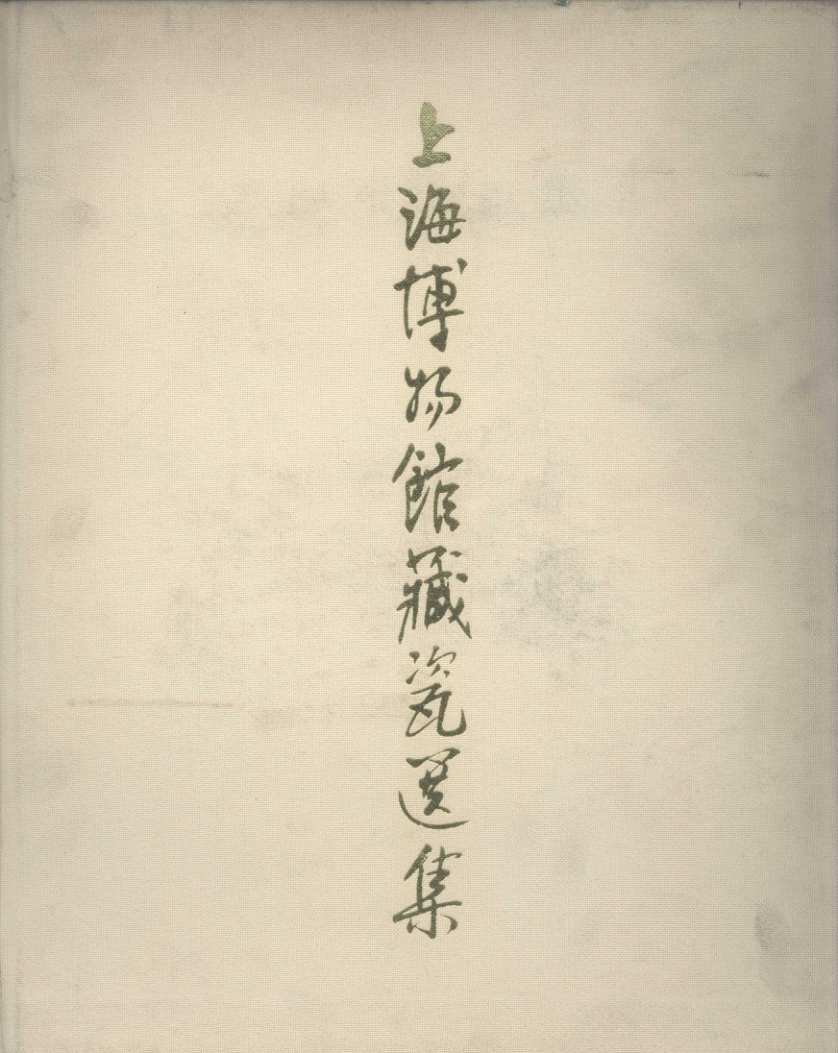 上海博物館藏瓷選集